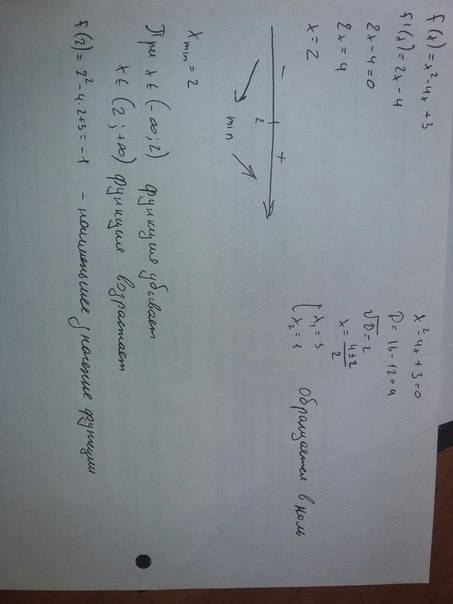 f(x) = x² - 4x + 3
f'(x) = 2x - 4
2x - 4 = 0
2x = 4
x = 2
- 2 +
min
x min = 2
При x ∈ (-∞; 2) функция убывает
x ∈ (2; +∞) функция возрастает
f(2) = 2² - 4·2 + 3 = -1 - наименьшее значение функции
x² - 4x + 3 = 0
D = 16 - 12 = 4
√D = 2
x = (4 ± 2)/2
[ x₁ = 3
x₂ = 1
обращается в ноль